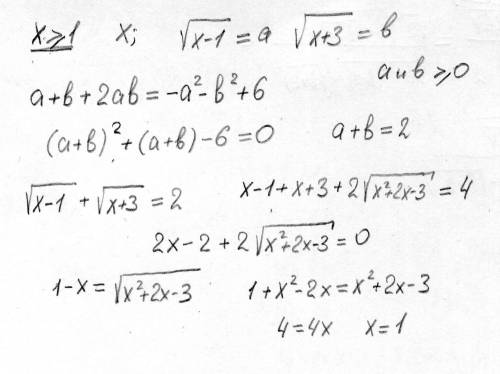 x ≥ 1   x;   √(x-1) = a   √(x+3) = b
a и b ≥ 0
a + b + 2ab = -a² - b² + 6
(a+b)² + (a+b) - 6 = 0   a + b = 2
√(x-1) + √(x+3) = 2   x - 1 + x + 3 + 2√(x²+2x-3) = 4
2x - 2 + 2√(x²+2x-3) = 0
1 - x = √(x²+2x-3)   1 + x² - 2x = x² + 2x - 3
4 = 4x   x = 1